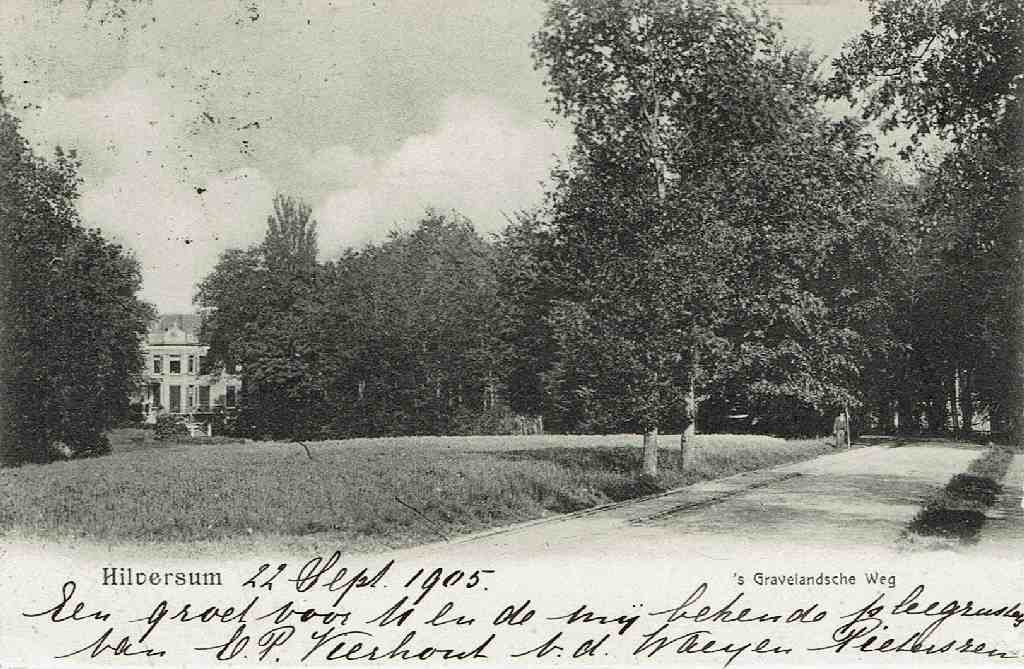 Hilversum 22 Sept. 1905. 's Gravelandsche Weg
Een groet voor U en de mij bekende pleegzusters
van C. P. Vierhout v. d. Waeyen Pieterszen